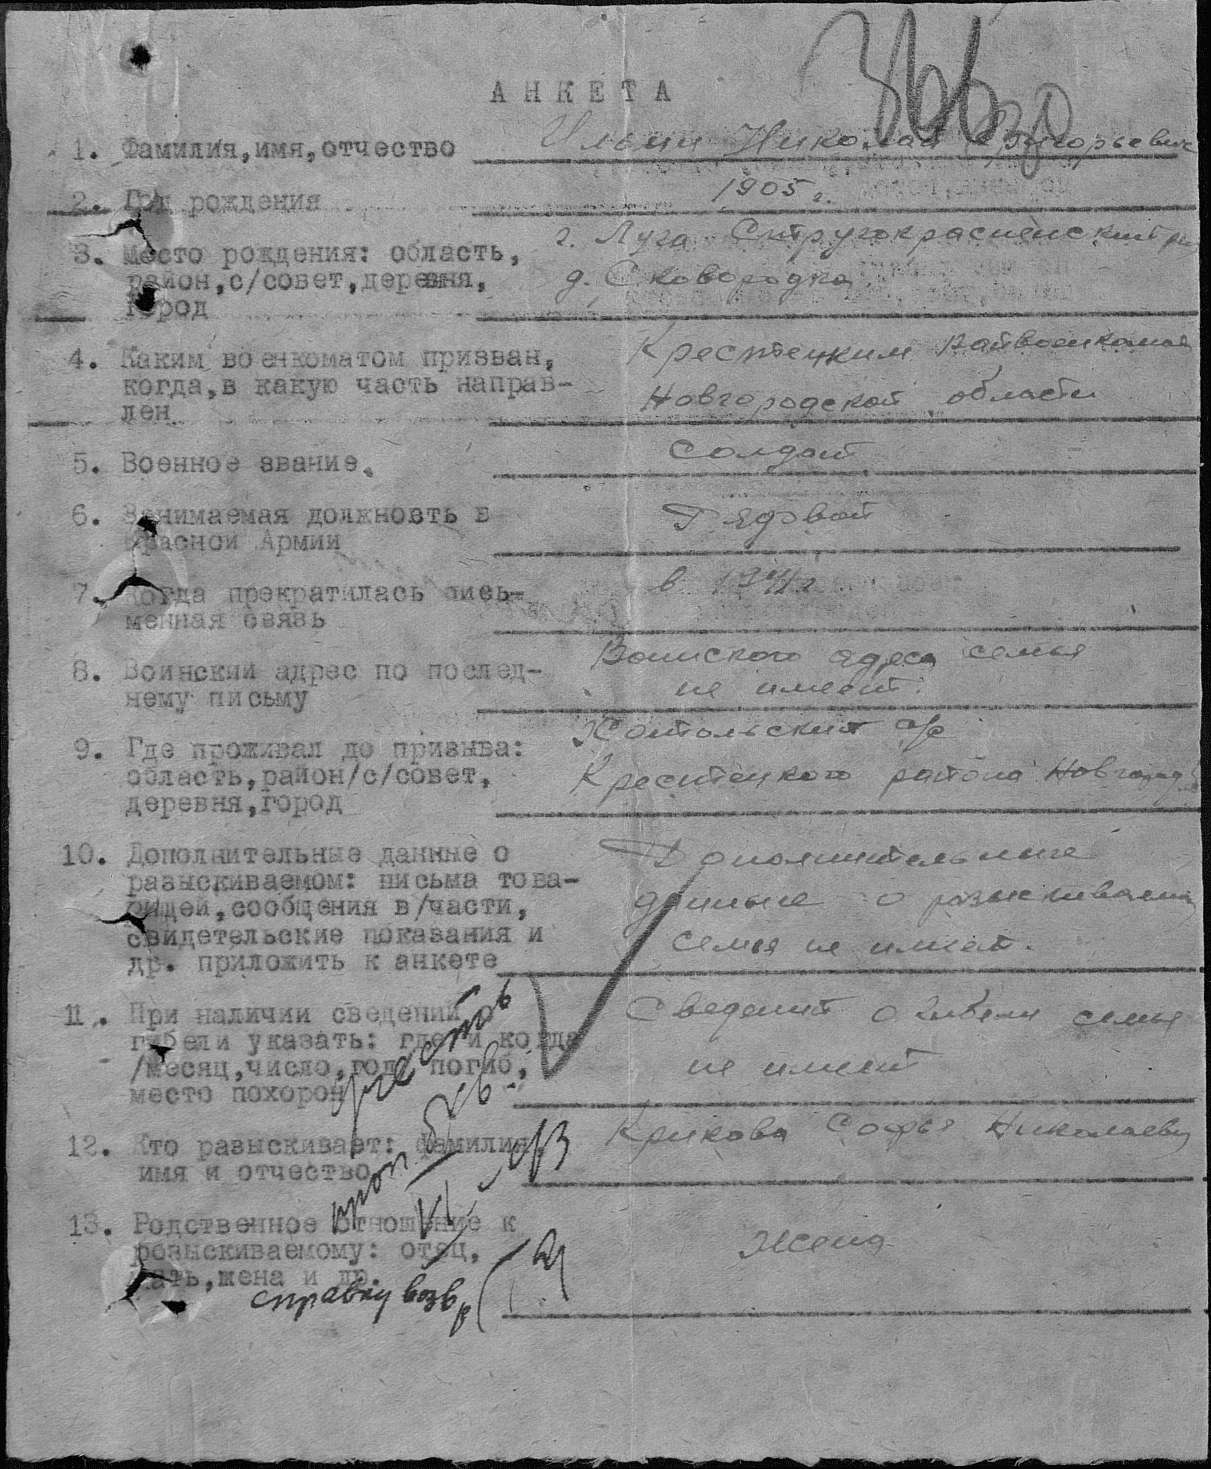 АНКЕТА
1. Фамилия,имя,отчество Ильин Николай Григорьевич
2. Год рождения 1905 г.
3. Место рождения: область, г. Луга Стругокрасненский
район,с/совет,деревня, д. Сковородка
город
4. Каким военкоматом призван, Крестецким Райвоенкомат
когда,в какую часть направ- Новгородской области
лен
5. Военное звание. Солдат
6. Занимаемая должность в Рядовой
Красной Армии
7. Когда прекратилась пись- в 1941 г
менная связь
8. Воинский адрес по послед- Воинского адреса семья
нему письму не имеет.
9. Где проживал до призыва: с/с
область,район/с/совет, Крестецкого района Новгород
деревня,город
10. Дополнительные данные о Дополнительные
разыскиваемом: письма това- данные о разыскиваемом
рищей,сообщения в/части, семья не имеет.
свидетельские показания и
др. приложить к анкете
11. При наличии сведений о Сведений о гибели семья
гибели указать: где и когда
/месяц,число,год/ погиб, не имеет
место похорон
12. Кто разыскивает: фамилия, Крикова Софья Николаевна
имя и отчество
13. Родственное отношение к Жена
розыскиваемому: отец,
мать,жена и др.
справку возвр